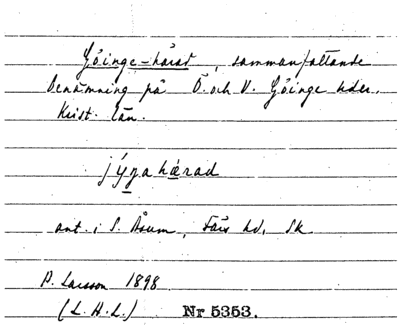 Göinge-härad, sammanfattande
benämning på Ö. och V. Göinge hder,
Krist. län.
jýŋahærad
ant. i S. Åsum, Färs hd, Sk
P. Larsson 1898
(L.H.L.) Nr 5353.